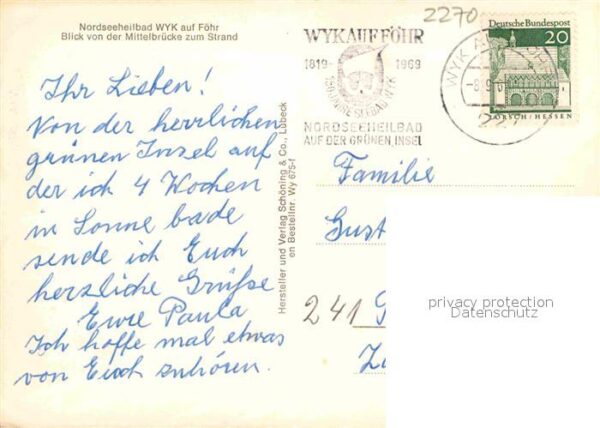 Nordseeheilbad WYK auf Föhr
Blick von der Mittelbrücke zum Strand
Ihr Lieben!
Von der herrlichen
grünen Insel auf
der ich 4 Wochen
in Sonne bade
sende ich Euch
herzliche Grüße
Eure Paula
Ich hoffe mal etwas
von Euch zuhören.
Hersteller und Verlag Schöning & Co., Lübeck
en Bestellnr. Wy 675-f
2270
WYK AUF FÖHR
1819- 1969
150 JAHRE SEEBAD WYK
NORDSEEHEILBAD
AUF DER GRÜNEN INSEL
WYK AUF FÖHR
-8.9.6
227
Deutsche Bundespost
20
LORSCH/HESSEN
Familie
Gust
241 G
privacy protection
Datenschutz